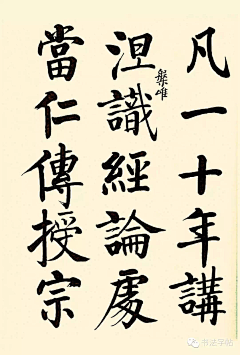 凡一十年講
涅槃唯識經論處
當仁傳授宗
书法字帖